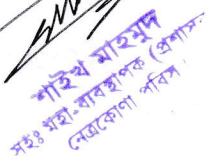 শাইখ মাহমুদ
সহঃ মহা-ব্যবস্থাপক (প্রশাসন-
নেত্রকোণা পবিস